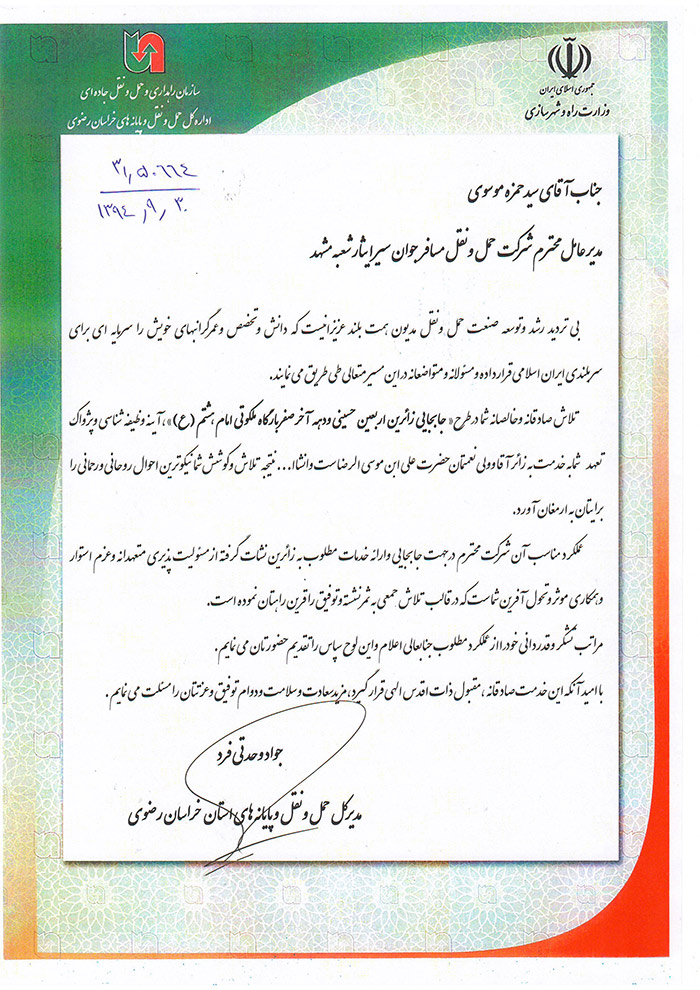 جمهوری اسلامی ایران
وزارت راه و شهرسازی
سازمان راهداری و حمل و نقل جاده ای
اداره کل حمل و نقل و پایانه های خراسان رضوی
۳۱٫۵۰۶۶۴
۱۳۹۴٫۹٫۳۰
جناب آقای سید حمزه موسوی
مدیرعامل محترم شرکت حمل و نقل مسافر جوان سیر ایثار شعبه مشهد
بی تردید رشد وتوسعه صنعت حمل ونقل مدیون همت بلند عزیزانیست که دانش وتخصص وعمرگرانبهای خویش را سرمایه ای برای
سربلندی ایران اسلامی قرار داده و مسئولانه و متواضعانه دراین مسیر متعالی طی طریق می نمایند.
تلاش صادقانه وخالصانه شما درطرح « جابجایی زائرین اربعین حسینی ودهه آخر صفر بارگاه ملکوتی امام هشتم (ع) »، آینه وظیفه شناسی وپژواک
تعهد شما به خدمت به زائر آقا وولی نعمتمان حضرت علی ابن موسی الرضاست وانشاا... نتیجه تلاش وکوشش شما نیکوترین احوال روحانی ورحمانی را
برایتان به ارمغان آورد.
عملکرد مناسب آن شرکت محترم درجهت جابجایی وارائه خدمات مطلوب به زائرین نشات گرفته از مسئولیت پذیری متعهدانه وعزم استوار
وهمکاری موثر وتحول آفرین شماست که در قالب تلاش جمعی به ثمر نشسته وتوفیق را قرین راهتان نموده است.
مراتب تشکر وقدردانی خود را از عملکرد مطلوب جنابعالی اعلام واین لوح سپاس را تقدیم حضورتان می نمایم.
با امید آنکه این خدمت صادقانه، مقبول ذات اقدس الهی قرار گیرد، مزید سعادت وسلامت ودوام توفیق وعزتتان را مسئلت می نمایم.
جواد وحدتی فرد
مدیرکل حمل و نقل و پایانه های استان خراسان رضوی